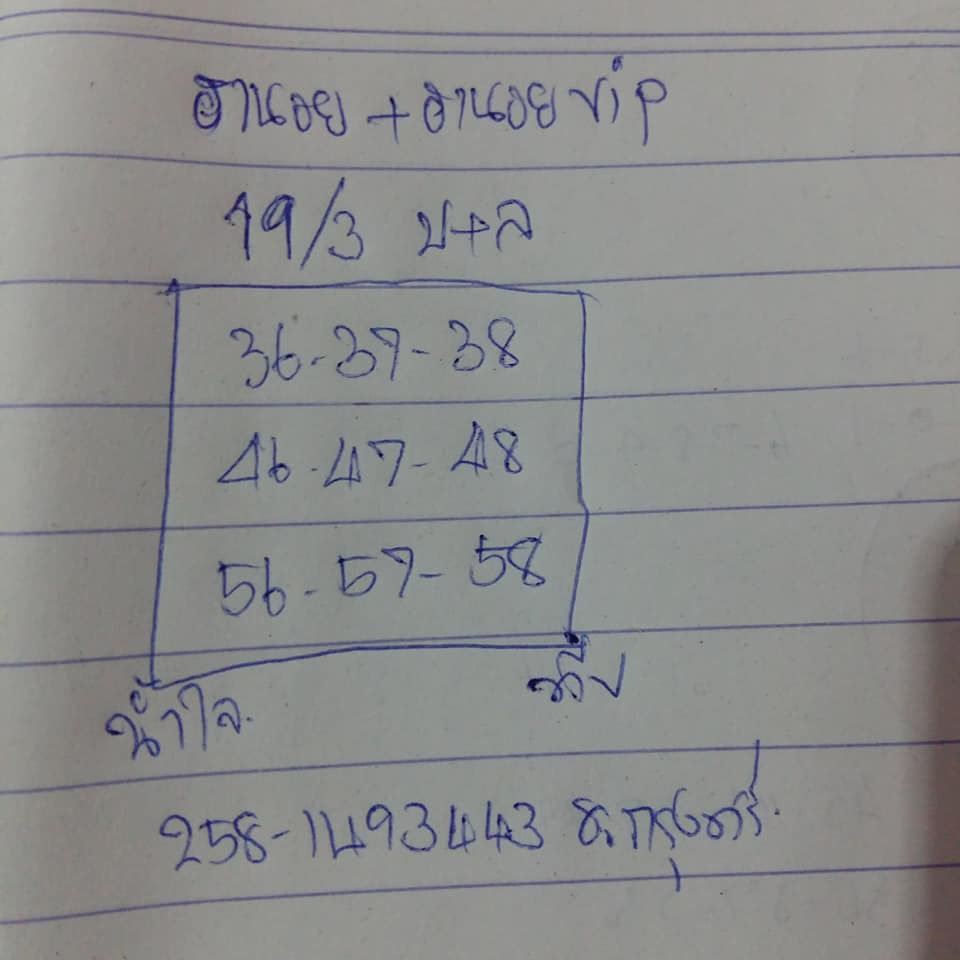 ฮานอย + ฮานอย vip
19/3 บ+ล
36-37-38
46-47-48
56-57-58
น้ำใจ.
258-1493443 ธ.กรุงศรี.